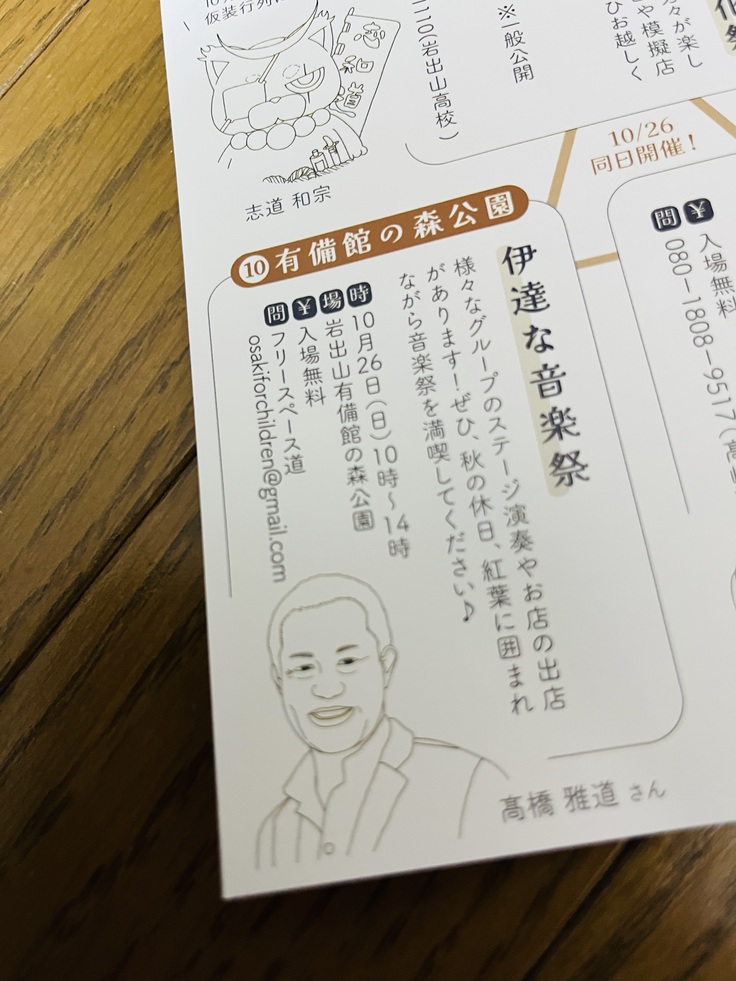 仮装行列
志道 和宗
※一般公開
(岩出山高校)
々が楽し
や模擬店
ひお越しく
10/26
同日開催！
⑩有備館の森公園
伊達な音楽祭
様々なグループのステージ演奏やお店の出店
があります！ぜひ、秋の休日、紅葉に囲まれ
ながら音楽祭を満喫してください♪
時 10月26日(日)10時〜14時
場 岩出山有備館の森公園
¥ 入場無料
問 フリースペース道
osakiforchildren@gmail.com
髙橋 雅道 さん
¥ 入場無料
問 080-1808-9517